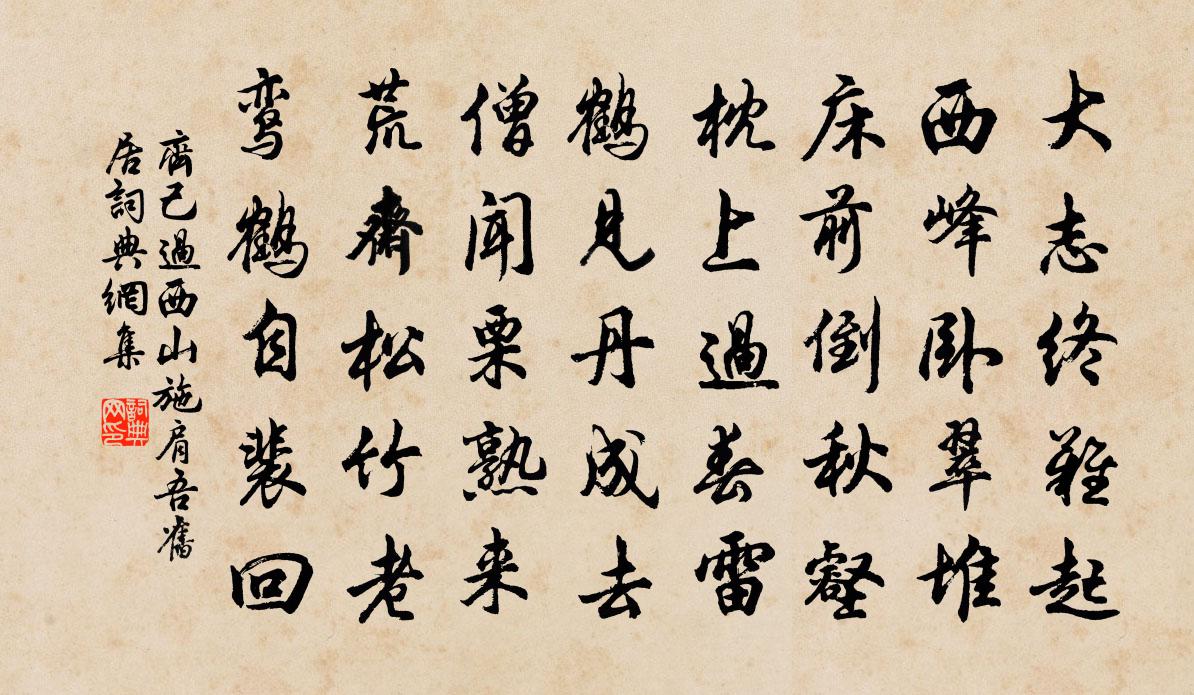 大志终難起
西峰卧翠堆
床前倒秋壑
枕上過春雷
鶴见丹成去
僧闻栗熟来
荒齋松竹老
鸾鶴自裴回
齊己過西山施肩吾舊
居詞典網集
詞典
网印